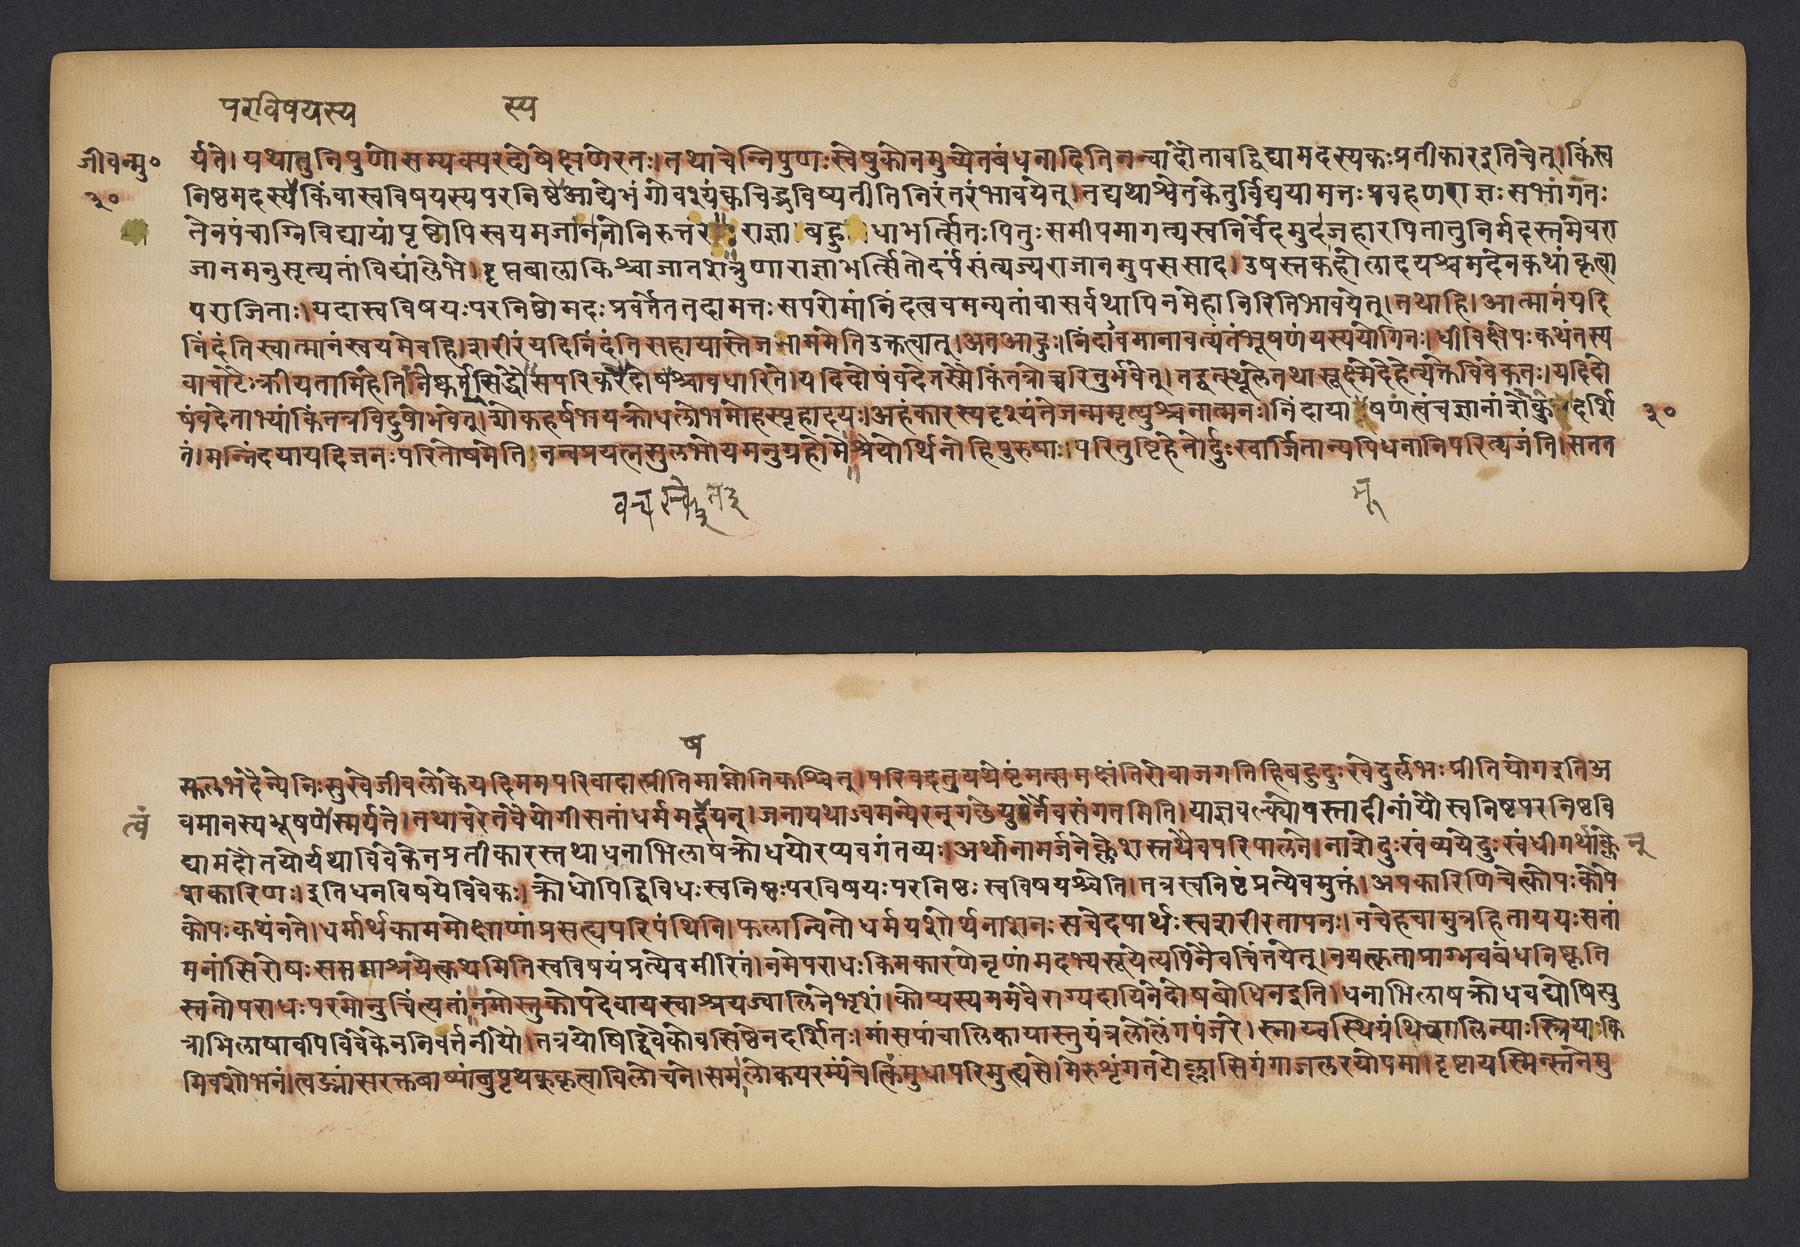 परविषयस्य स्य
जीवन्मु॰ र्यते। यथातुनिपुणोसम्यक्परदोषेक्षणेरतः। तथाचेन्निपुणःस्वेषुकोनमुच्येतबंधनादिति नन्वादौतावद्विद्यामदस्यकःप्रतीकारइतिचेत्। किंस्व
३० निष्ठमदस्य किंवास्वविषयस्यपरनिष्ठे आद्येभंगोवश्यंक्वचिद्भविष्यतीतिनिरंतरंभावयेत्। तद्यथाश्वेतकेतुर्विद्ययामत्तः प्रवहणराज्ञः सभांगतः
तेनपंचाग्निविद्यायांपृष्टोपिस्वयमजानानोनिरुत्तर राज्ञा बहु धाभर्त्सितःपितुःसमीपमागत्यस्वनिर्वेदमुदजहारपितातुनिर्मदस्तमेवरा
जानमनुसृत्यतांविद्यांलेभे। दृप्तबालाकिश्चाजातशत्रुणाराज्ञाभर्त्सितोदर्पंसंत्यज्यराजानमुपससाद। उषस्तकहोलादयश्चमदेनकथांकृत्वा
पराजिताः। यदास्वविषयःपरनिष्ठोमदःप्रवर्तेततदामत्तः सपरोमांनिंदत्ववमन्यतांवासर्वथापिनमेहानिरितिभावयेत्। तथाहि। आत्मानंयदि
निंदंतिस्वात्मानंस्वयमेवहि। शरीरंयदिनिंदंतिसहायास्तेजनाममेतिउक्तत्वात्। अतआहुः। निंदावमानावत्यंतंभूषणंयस्ययोगिनः। धीविक्षेपःकथंतस्य
वाचाटैःक्रीयतामिहेति नैष्कर्म्यसिद्धौसपरिकरदोषश्चावधारिते। यदिदोषंवदेत्तस्मैकिंतत्रोच्चरितुर्भवेत्। तद्वत्स्थूलेतथासूक्ष्मेदेहेत्यक्तेविवेकतः। यदिदो
षंवदेत्ताभ्यांकिंतत्रविदुषोभवेत्। शोकहर्षभयक्रोधलोभमोहस्पृहादयः। अहंकारस्यदृश्यंतेजन्ममृत्युश्चनात्मनः। निंदाया षणत्वंचज्ञानांशेकु दर्शि ३०
तं। मन्निंदयायदिजनःपरितोषमेति नन्वप्रयत्नसुलभोयमनुग्रहोमे श्रेयोर्थिनोहिपुरुषाः परितुष्टिहेतोर्दुःखार्जितान्यपिधनानिपरित्यजंति। सतत
भू
ष
मलभेदैन्येनिःसुखेजीवलोकेयदिममपरिवादात्प्रीतिमाप्नोतिकश्चित्। परिवदतुयथेष्टंमत्समक्षंतिरोवाजगतिहिबहुदुःखेदुर्लभःप्रीतियोगइतिअ
त्वं वमानस्यभूषणंस्मर्यते। तथाचरेतवैयोगीसतांधर्ममदूषयन्। जनायथाऽवमन्येरन्गछेयुर्नैवसंगतमिति। याज्ञवल्क्योषस्तादीनांयौस्वनिष्टपरनिष्टवि
द्यामदौतयोर्यथाविवेकेनप्रतीकारस्तथाधनाभिलाषक्रोधयोरप्यवगंतव्यः। अर्थानामर्जनेक्लेशस्तथैवपरिपालने। नाशेदुःखंव्ययेदुःखंधीगर्थाक्ले नू
शकारिणः। इतिधनविषयेविवेकः। क्रोधोपिद्विविधःस्वनिष्ठःपरविषयःपरनिष्ठः स्वविषयश्चेति। तत्रस्वनिष्टंप्रत्येवमुक्तं। अपकारिणिचेत्कोपःकोपे
कोपःकथंनते। धर्मार्थकाममोक्षाणांप्रसत्यपरिपंथिनि। फलान्वितोधर्मयशोर्थनाशनः सचेदपार्थःस्वशरीरतापनः। नचेहचामुत्रहितायययःसतां
मनांसिरोषःसमाश्रयेत्कथमितिस्वविषयंप्रत्येवमीरितं। नमेपराधःकिमकारणेनृणांमदभ्यसूयेत्यपिनैवचिंतयेत्। नयत्कृताप्राग्भवबंधनिष्कृति
स्ततोपराधःपरमोनुचिंत्यतां नमोस्तुकोपदेवायस्वाश्रयज्वालिनेभृशं। कोप्यस्यममवैराग्यदायिनेदोषबोधिनइति। धनाभिलाषक्रोधवद्योषित्पु
त्राभिलाषावपिविवेकेननिवर्तनीयौ। तत्रयोषिद्विवेकोवसिष्ठेनदर्शितः। मांसपांचालिकायास्तुयंत्रलोलेंगपंजरे। स्नाय्वस्थिग्रंथिशालिन्याःस्त्रियाःकि
मिवशोभनं। त्वङ्मांसरक्तबाष्पांबुपृथक्कृत्वाविलोचनं। समालोकयरम्यंचेत्किंमुधापरिमुह्यसे। मेरुशृंगतटोल्लासिगंगाजलरयोपमा। दृष्टायस्मिन्स्तनेमु